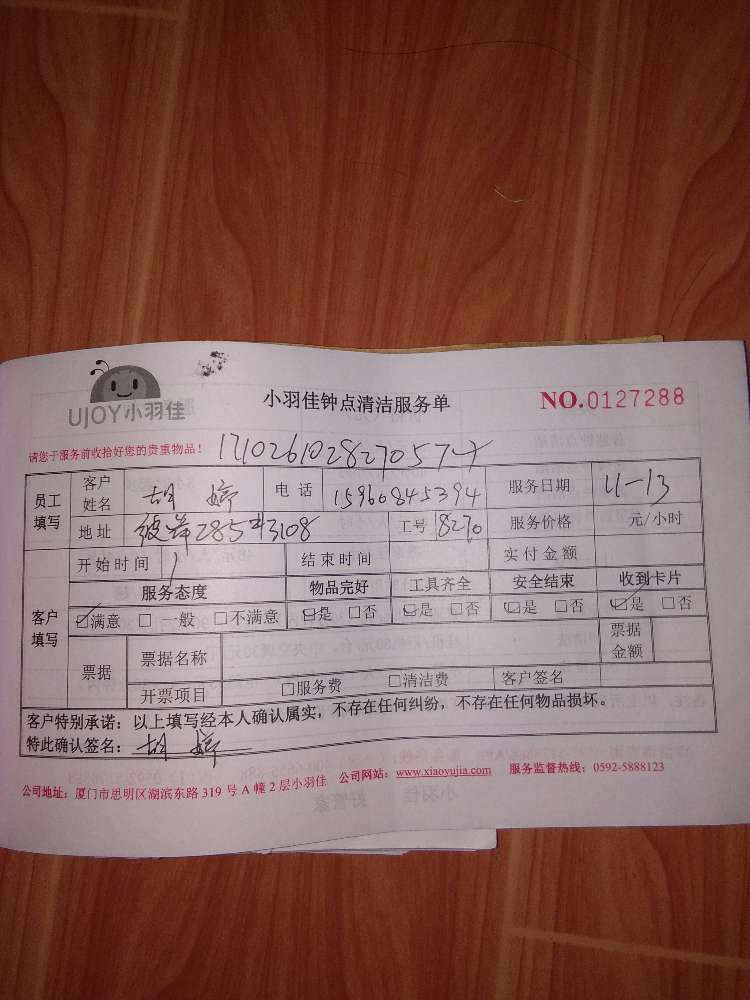 UJOY小羽佳
小羽佳钟点清洁服务单
NO.0127288
请您于服务前收拾好您的贵重物品!
员工填写 客户姓名 胡婷 电话 15960845394 服务日期 11-13
地址 285#3108 工号 8270 服务价格 元/小时
客户填写 开始时间 结束时间 实付金额
服务态度 物品完好 工具齐全 安全结束 收到卡片
☑满意 □一般 □不满意 ☑是 □否 ☑是 □否 ☑是 □否 ☑是 □否
票据 票据名称 票据金额
开票项目 □服务费 □清洁费 客户签名
客户特别承诺:以上填写经本人确认属实,不存在任何纠纷,不存在任何物品损坏。
特此确认签名:胡婷
公司地址:厦门市思明区湖滨东路 319 号 A 幢 2 层小羽佳 公司网站:www.xiaoyujia.com 服务监督热线:0592-5888123